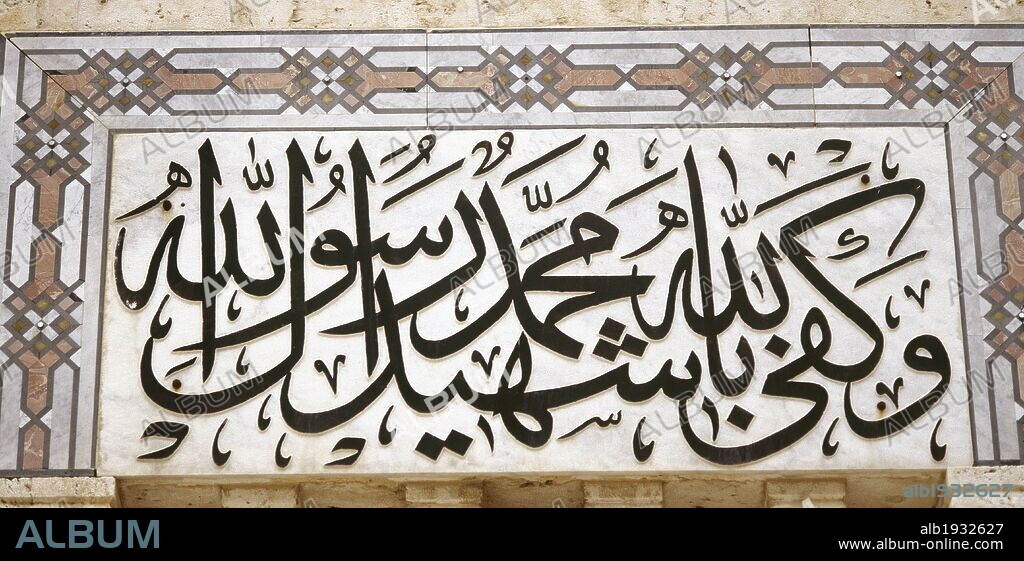 وكفى بالله شهيدا محمد رسول الله
alb1932627
ALBUM
alb1932627
www.album-online.com